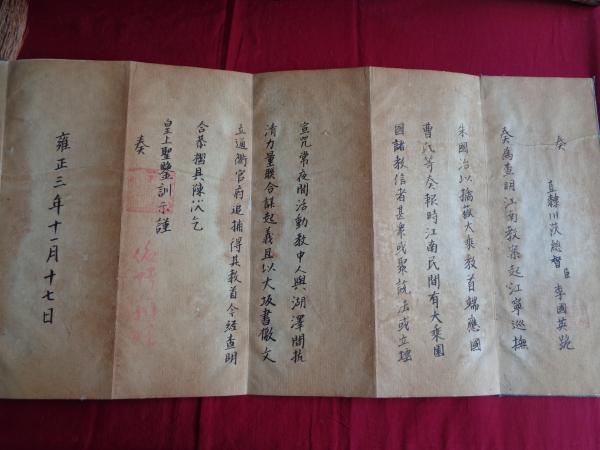 奏
直隸川茨總督臣李國英跪
奏為查明江南教案起江寧巡撫
朱國治以擒獲大乘教首端應國
曹氏等奏報時江南民間有大乘圓
國諸教信者甚衆或聚説法或立壇
宣咒常夜間活動教中人與湖澤間抗
清力量聯合謀起義且以大坂書檄文
立通衢官府追捕得其教首令經查明
合恭摺具陳伏乞
皇上聖鑒訓示謹
奏
雍正三年十一月十七日